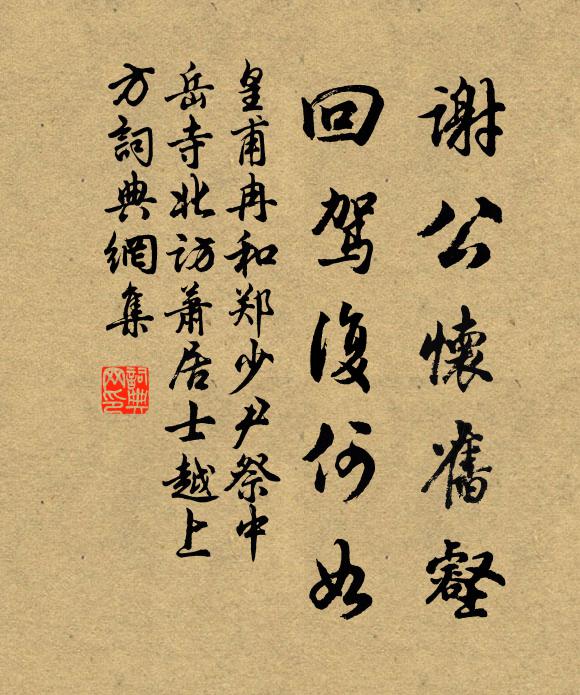 谢公懷舊壑
回驾復何如
皇甫冉和郑少尹祭中
岳寺北访萧居士越上
方詞典網集
詞典
网印